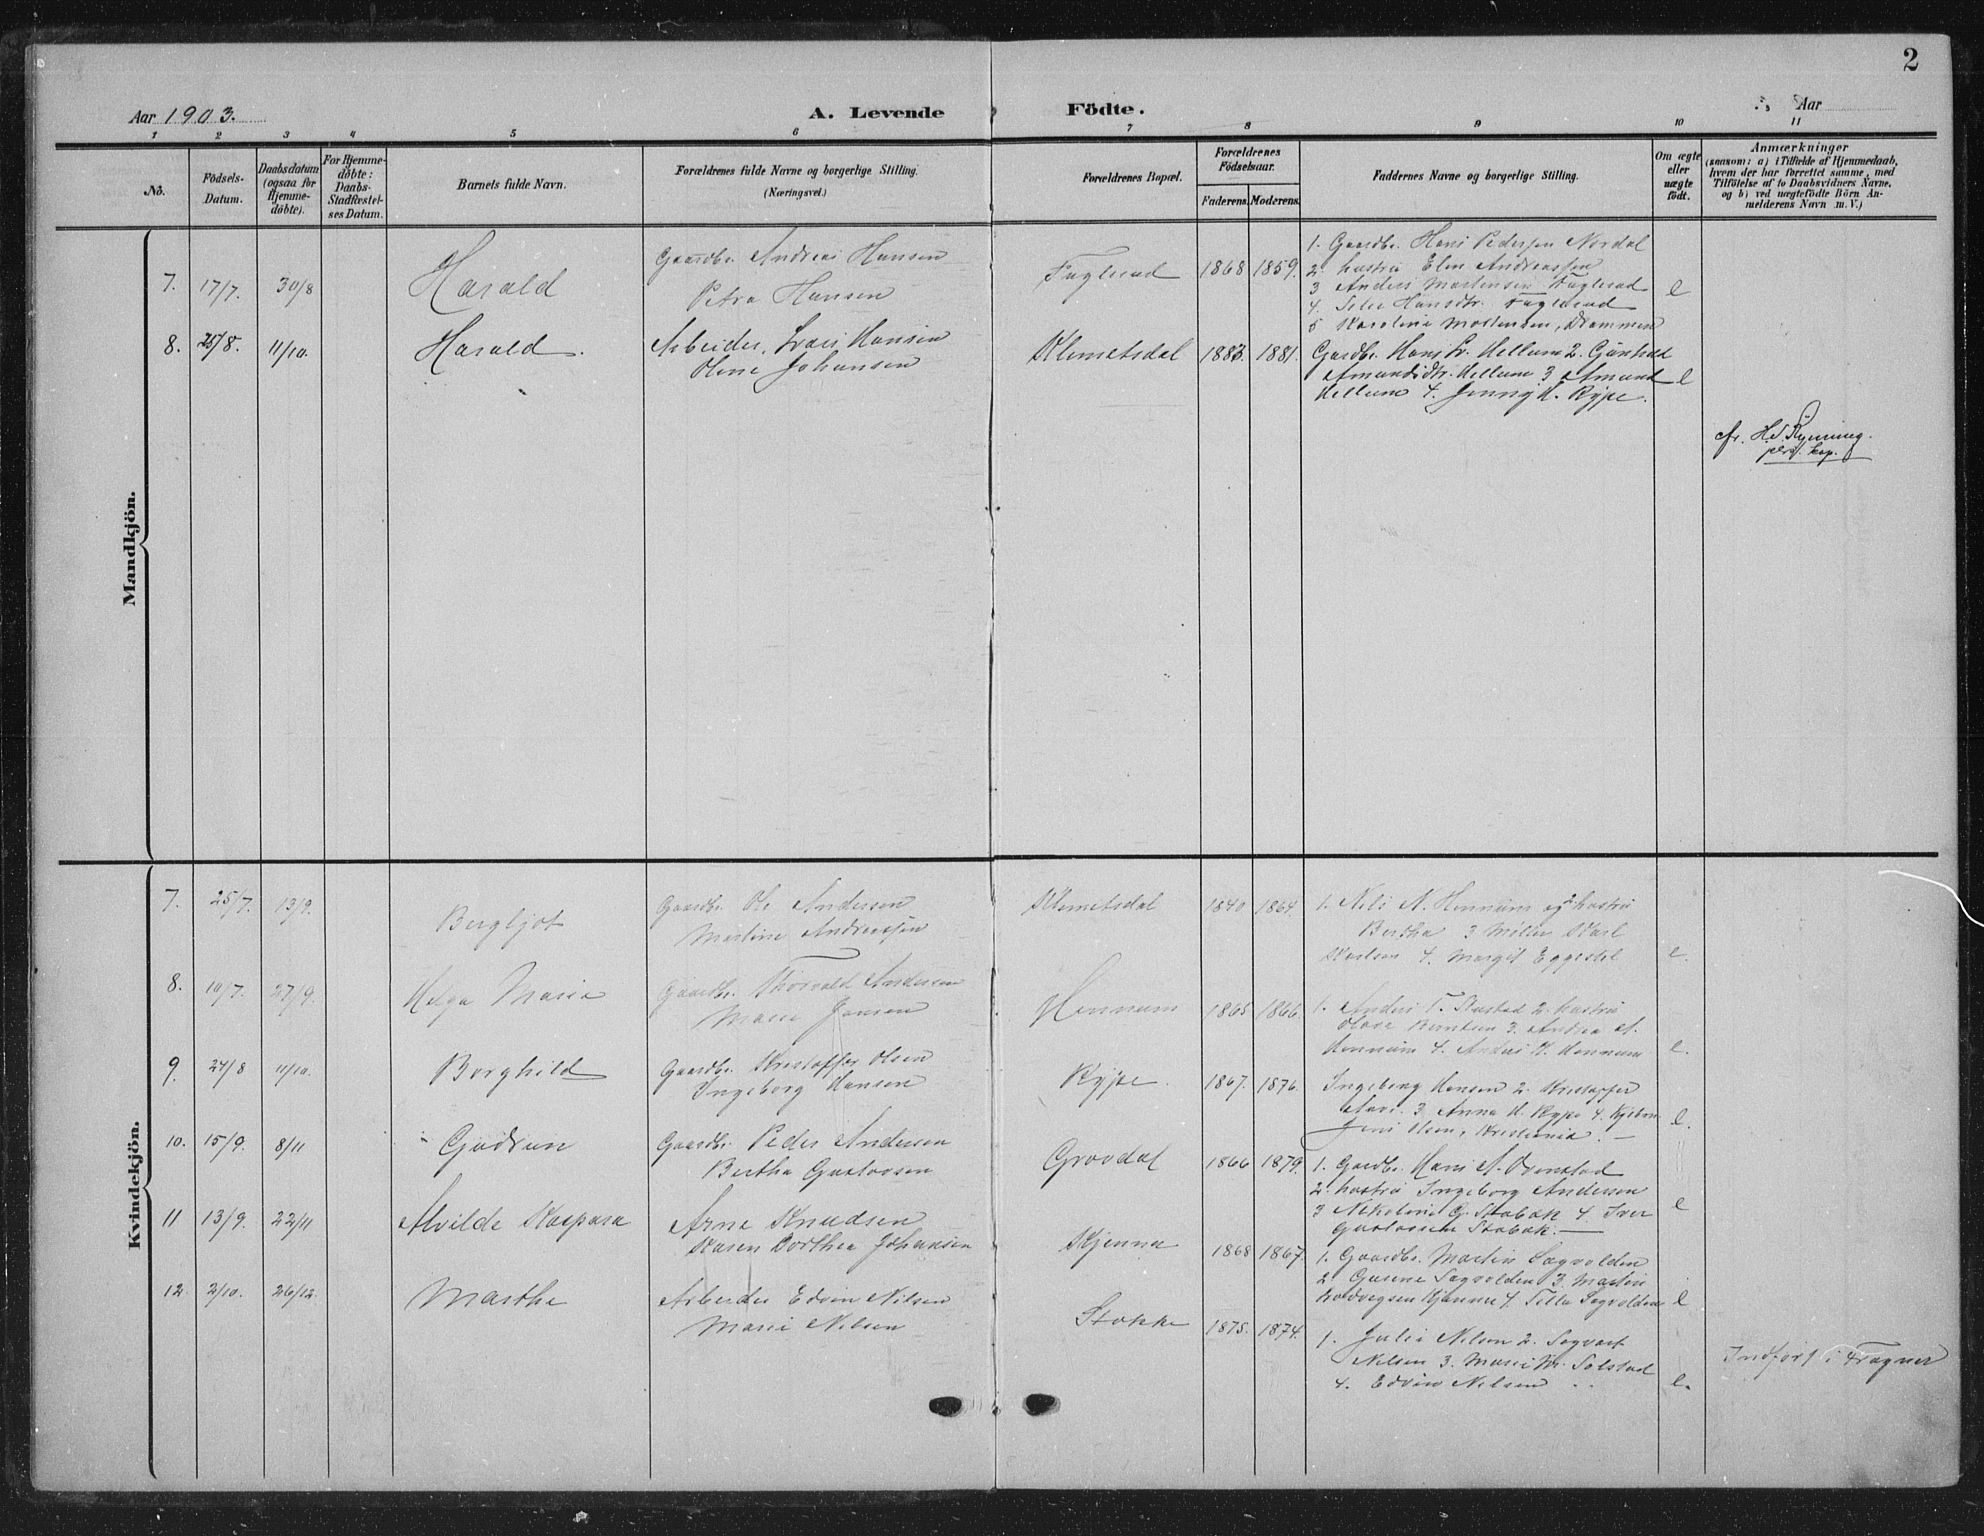 2
Aar 1903.
A. Levende Födte.
Aar
1 2 3 4 5 6 7 8 9 10 11
No.
Födsels-Datum.
Daabsdatum (ogsaa for Hjemme-döbte).
For Hjemme-döbte: Daabs-Stadfæstel-ses Datum.
Barnets fulde Navn.
Forældrenes fulde Navne og borgerlige Stilling.
(Næringsvei.)
Forældrenes Bopæl.
Forældrenes Födselsaar.
Faderens. Moderens.
Faddernes Navne og borgerlige Stilling.
Om ægte eller uægte födt.
Anmærkninger
(saasom: a) i Tilfælde af Hjemmedaab, hvem der har forrettet samme, med Tilföielse af to Daabsvidners Navne, og b) ved uægtefödte Börn An-melderens Navn m. V.)
Mandkjön.
7. 17/7. 30/8 Harald Gaardbr. Andreas Hansen
Petra Hansen
Faglerud 1868 1859.
1. Gaardbr. Hans Pedersen Nordal
2. hustru Elen Andreassen
3 Anders Martensen Faglerud
4. Hansdtr. Faglerud
5 Karoline Mortensen, Drammen
e
8. 25/8. 11/10. Harald. Arbeider, Hansen
Oline Johansen
Klemetsdal 1883. 1881.
Gardbr. Hans Hellum 2.
Amundsdtr. Hellum 3 Amund
Hellum 4. Jenny H. Rype.
e
cfr. Rynning
Kvindekjön.
7. 25/7. 13/9. Bergljot Gaardbr. Ole Andersen
Martine Andreassen
Klemetsdal 1840 1864.
1. Nils A. Hennum og 2 hustru
Bertha 3 Møller Karl
Karlsen 4. Margit Eggestel
e.
8. 10/7. 27/9. Helga Marie Gaardbr. Thorvald Andersen
Marie Jensen
Hennum 1865 1866.
1. Anders T. 2. hustru
Berntsen 3. Andrea A.
Hennum 4. Anders H. Hennum
e.
9. 24/8 11/10. Borghild Gaardbr. Kristoffer Olsen
Ingeborg Hansen
Rype. 1867. 1876.
Ingeborg Hansen 2. Kristoffer
3 Anna H. Rype 4.
Jens Olsen, Kristiania.
e.
10. 15/9. 8/11 Gudrun Gaardbr. Peder Andersen
Bertha Gustavsen
Grovdal 1866 1879.
1. Gardbr. Hans A.
2. hustru Ingeborg Andersen
3 Nikoline G. Stabæk 4. Iver
Gustavsen Stabæk.
e
11 13/9. 22/11 Alvilde Kaspara Arne Knudsen
Karen Dorthea Johansen
Skjenna 1868 1867.
1. Gaardbr. Martin Sagvolden
2. Sagvolden 3. Martin
4. Sagvolden
e
12. 2/10. 26/12. Marthe Arbeider Edvin Nilsen
Marie Nilsen
Stokke 1875. 1874.
1. Julie Nilsen 2. Sigvart
Nilsen 3. Marie Solstad
4. Edvin Nilsen
e.
Indført i Fragner